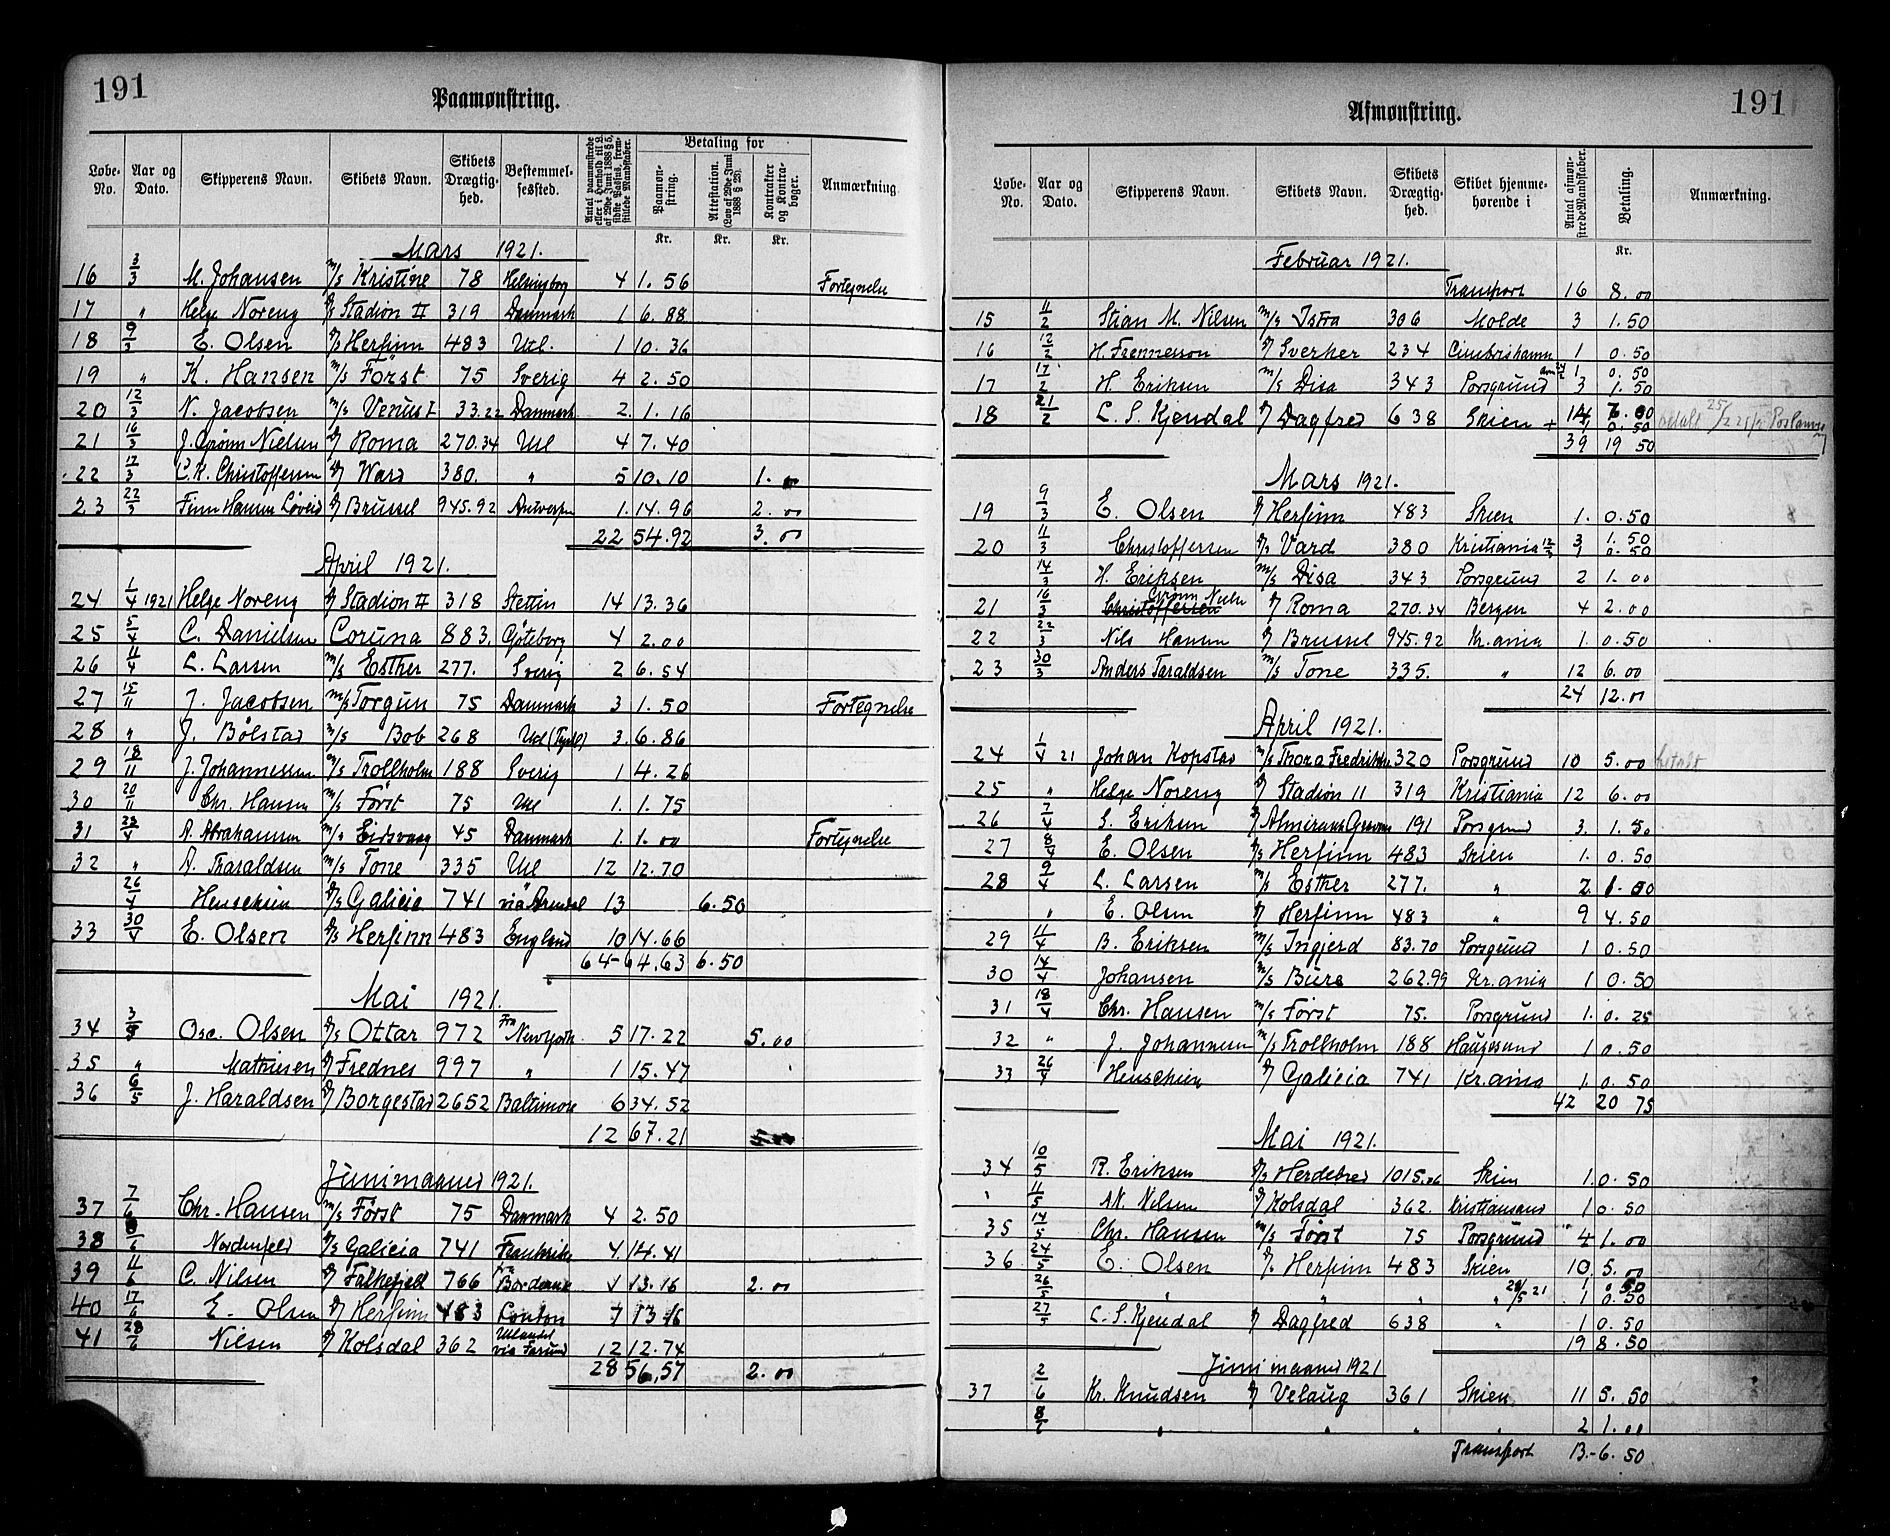 191
Paamønstring.
Løbe-No. Aar og Dato. Skipperens Navn. Skibets Navn. Skibets Drægtighed. Bestemmelsessted. Antal paamønstrede eller i Henhold til L. af 29de Juni 1888 § 5, sidste Passus, fremstillede Mandskaber. Betaling for Paamønstring. Attestation. (Lov af 29de Juni 1888 § 28). Kontrakter og Kontrabøger. Anmærkning.
Kr. Kr. Kr.
Mars 1921.
16 3/3 M. Johansen M/S Kristine 78 Helsingborg 4 1.56 Fortegnelse
17 " Helge Noreng D/S Stadion II 319 Danmark 1 6.88
18 9/3 E. Olsen D/S Herfinn 483 Utl. 1 10.36
19 " K. Hansen M/S Först 75 Sverig 4 2.50
20 12/3 N. Jacobsen M/S Venus I 33.22 Danmark 2. 1.16
21 16/3 J. Grönn Nielsen D/S Roma 270.34 Utl 4 7.40
22 17/3 C. K. Christoffersen D/S Ward 380. " 5 10.10 1.00
23 22/3 Finn Hansen Löveid D/S Brussel 945.92 Antwerpen 1. 14.96 2.00
22 54.92 3.00
April 1921.
24 1/4 1921 Helge Noreng D/S Stadion II 318 Stettin 14 13.36
25 5/4 C. Danielsen Coruna 883. Göteborg 4 2.00
26 11/4 L. Larsen M/S Esther 277. Sverig 2 6.54
27 15/11 J. Jacobsen M/S Torgun 75 Danmark 3 1.50 Fortegnelse
28 " J. Bölstad M/S Bob 268 Utl (Tyskl) 3. 6.86
29 18/11 J. Johannessen M/S Trollholm 188 Sverig 1 4.26
30 20/11 Chr. Hansen M/S Först 75 Utl 1. 1.75
31 23/4 A. Abrahamsen M/S Eidsvaag 45 Danmark 1. 1.00 Fortegnelse
32 " A. Tharaldsen M/S Tone 335 Utl 12 12.70
26/4 Henschien D/S Galicia 741 via Arendal 13 6.50
33 30/4 E. Olsen D/S Herfinn 483 England 10 14.66
64 - 64.63 6.50
Mai 1921.
34 3/5 Osc. Olsen D/S Ottar 972 Fra New York 5 17.22 5.00
35 " Mathiesen D/S Frednes 997 " 1 15.47
36 6/5 J. Haraldsen D/S Borgestad 2652 Baltimore 6 34.52
12 67.21 5.00
Junimaaned 1921.
37 7/6 Chr. Hansen M/S Först 75 Danmark 4 2.50
38 8/6 Nordenfeld D/S Galicia 741 Frankrike 4. 14.41
39 11/6 C. Nilsen D/S Falkefjell 766 fra Bordeaux 1 13.16 2.00
40 17/6 E. Olsen D/S Herfinn 483 London 7 13.16
41 28/6 Nilsen D/S Kolsdal 362 Utlandet via Farsund 12 12.74
28 56,57 2.00
191
Afmønstring.
Løbe-No. Aar og Dato. Skipperens Navn. Skibets Navn. Skibets Drægtighed. Skibet hjemmehørende i Antal afmønstrede Mandskaber. Betaling. Anmærkning.
Kr.
Februar 1921.
Transport 16 8.00
15 11/2 Stian M. Nilsen M/S Istra 306 Molde 3 1.50
16 12/2 H. Frennesson D/S Sverker 234 Cimbrishamn 1 0.50
17 17/2 H. Eriksen M/S Disa 343 Porsgrund 24/2 1 0.50
3 1.50
18 21/2 L. S. Kjendal D/S Dagfred 638 Skien + 14 7.00
1 0.50
39 19 50
Mars 1921.
19 9/3 E. Olsen D/S Herfinn 483 Skien 1. 0.50
20 11/3 Christoffersen D/S Vard 380 Kristiania 3 1.50
12/3 1 0.50
14/3 H. Eriksen M/S Disa 343 Porsgrund 2 1.00
21 16/3 Christoffersen Grönn Nielsen D/S Roma 270.34 Bergen 4 2.00
22 22/3 Nils Hansen D/S Brussel 945.92 Kr.ania 1. 0.50
23 30/3 Anders Taraldsen M/S Tone 335. " 12 6.00
24 12.00
April 1921.
24 1/4 21 Johan Kopstad M/S Thora Fredrikke 320 Porsgrund 10 5.00 betalt
25 " Helge Noreng D/S Stadion II 319 Kristiania 12 6.00
26 7/4 S. Eriksen 191 Porsgrund 3. 1.50
27 8/4 E. Olsen D/S Herfinn 483 Skien 1. 0.50
28 9/4 L. Larsen M/S Esther 277. " 2 1.00
" E. Olsen D/S Herfinn 483 " 9 4.50
29 11/4 B. Eriksen M/S Ingjerd 83.70 Porsgrund 1 0.50
30 14/4 Johansen M/S Bura 262.99 Kr.ania 1 0.50
31 18/4 Chr. Hansen M/S Först 75. Porsgrund 1. 0.25
32 " J. Johannesen M/S Trollholm 188 Haugesund 1 0.50
33 26/4 Henschien D/S Galicia 741 Kr.ania 1. 0.50
42 20 75
Mai 1921.
34 10/5 R. Eriksen D/S Herdebred 1015.26 Skien 1. 0.50
11/5 M. Nilsen D/S Kolsdal 362. Kristiansand 1 0.50
35 14/5 Chr. Hansen M/S Först 75 Porsgrund 4 1.00
36 24/5 E. Olsen D/S Herfinn 483 Skien 10 5.00
26/5 " " " " 1 0.50
28/5 21 1 0.50
27/5 L. S. Kjendal D/S Dagfred 638 " 1 0.50
19 8.50
Junimaaned 1921
37 2/6 Kr. Knudsen D/S Velaug 361 Skien 11 5.50
8/6 " " " " 2 1.00
Transport 13.-6.50